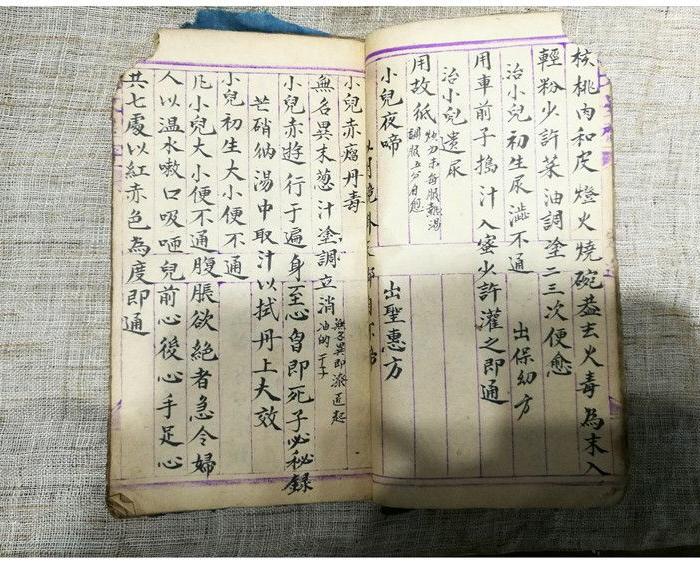 核桃肉和皮燈火燒碗蓋去火毒為末入
輕粉少許菜油調塗二三次便愈
治小兒初生尿澁不通　出保幼方
用車前子搗汁入蜜少許灌之即通
治小兒遺尿
用故紙
炒为末每服熱湯
調服五分
小兒夜啼　出聖惠方
小兒赤瘤丹毒
無名異末葱汁塗調立消
無名異即漆匠起
油的
小兒赤遊行于遍身至心胷即死子必秘錄
芒硝納湯中取汁以拭丹上大效
小兒初生大小便不通
凡小兒大小便不通腹脹欲絕者急令婦
人以温水嗽口吸咂兒前心後心手足心
共七處以紅赤色為度即通